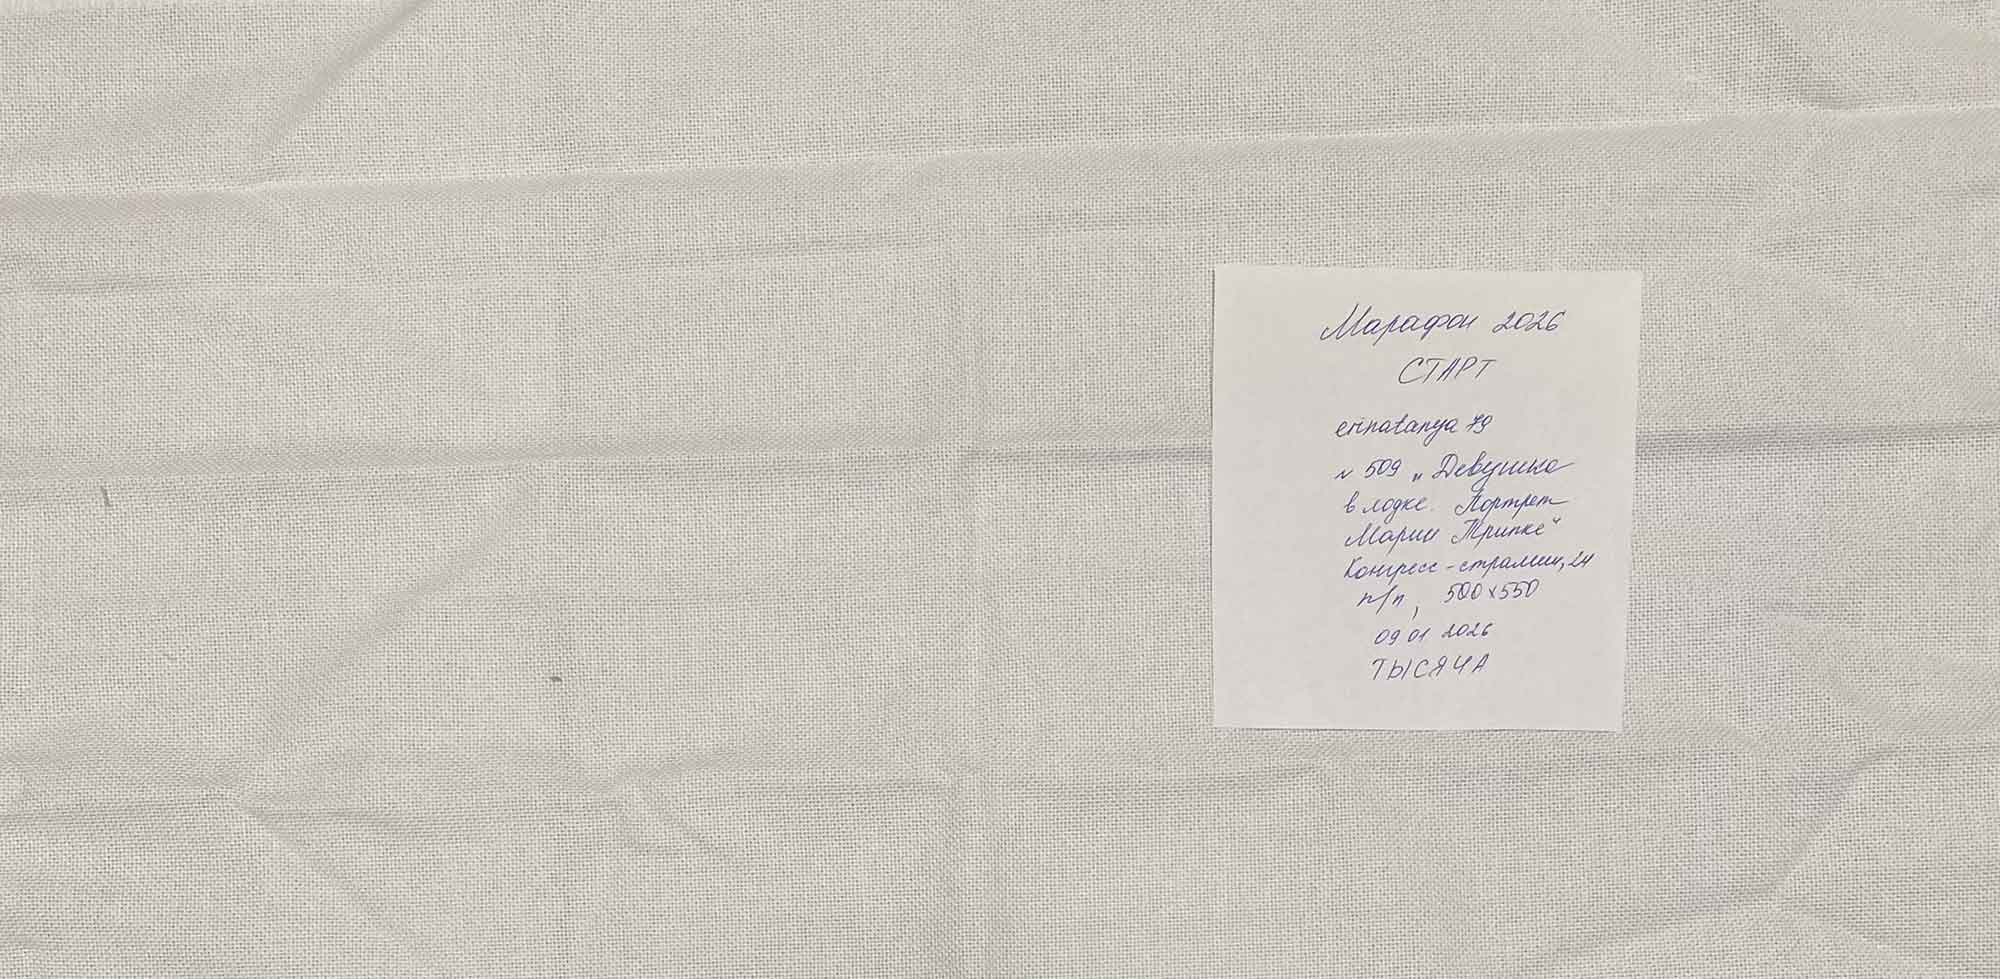 Марафон 2026
СТАРТ
erinatanya 79
№ 509 „Девушка
в лодке. Портрет
Марии Трипке"
Конгресс-страмин, 24
п/п, 500х550
09 01 2026
ТЫСЯЧА